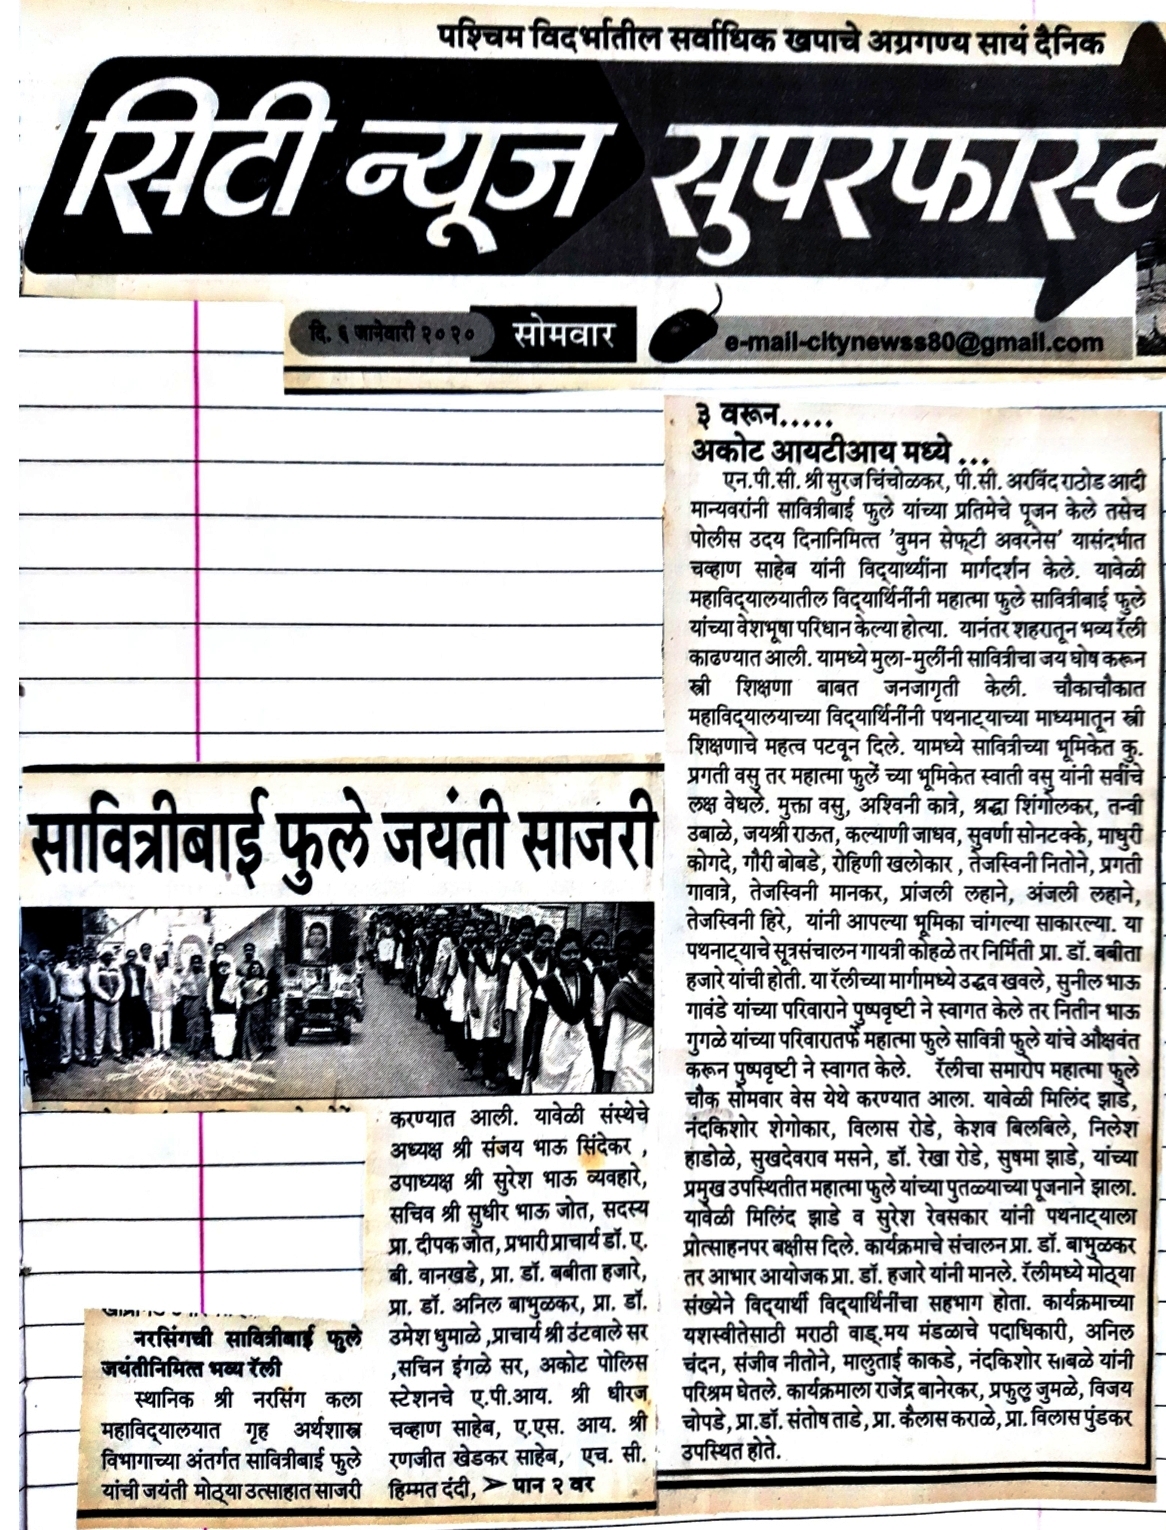 पश्चिम विदर्भातील सर्वाधिक खपाचे अग्रगण्य सायं दैनिक
सिटी न्यूज सुपरफास्ट
दि. ६ जानेवारी २०२० सोमवार e-mail-citynewss80@gmail.com
सावित्रीबाई फुले जयंती साजरी
नरसिंगची सावित्रीबाई फुले
जयंतीनिमित्त भव्य रॅली
स्थानिक श्री नरसिंग कला
महाविद्यालयात गृह अर्थशास्त्र
विभागाच्या अंतर्गत सावित्रीबाई फुले
यांची जयंती मोठ्या उत्साहात साजरी
करण्यात आली. यावेळी संस्थेचे
अध्यक्ष श्री संजय भाऊ सिंदेकर ,
उपाध्यक्ष श्री सुरेश भाऊ व्यवहारे,
सचिव श्री सुधीर भाऊ जोत, सदस्य
प्रा. दीपक जोत, प्रभारी प्राचार्य डॉ. ए.
बी. वानखडे, प्रा. डॉ. बबीता हजारे,
प्रा. डॉ. अनिल बाभुळकर, प्रा. डॉ.
उमेश धुमाळे ,प्राचार्य श्री उंटवाले सर
,सचिन इंगळे सर, अकोट पोलिस
स्टेशनचे ए.पी.आय. श्री धीरज
चव्हाण साहेब, ए.एस. आय. श्री
रणजीत खेडकर साहेब, एच. सी.
हिम्मत दंदी, ➢ पान २ वर
३ वरून.....
अकोट आयटीआय मध्ये ...
एन.पी.सी. श्री सुरज चिंचोळकर, पी.सी. अरविंद राठोड आदी
मान्यवरांनी सावित्रीबाई फुले यांच्या प्रतिमेचे पूजन केले तसेच
पोलीस उदय दिनानिमित्त 'वुमन सेफ्टी अवरनेस' यासंदर्भात
चव्हाण साहेब यांनी विद्यार्थ्यांना मार्गदर्शन केले. यावेळी
महाविद्यालयातील विद्यार्थिनींनी महात्मा फुले सावित्रीबाई फुले
यांच्या वेशभूषा परिधान केल्या होत्या. यानंतर शहरातून भव्य रॅली
काढण्यात आली. यामध्ये मुला-मुलींनी सावित्रीचा जय घोष करून
स्त्री शिक्षणा बाबत जनजागृती केली. चौकाचौकात
महाविद्यालयाच्या विद्यार्थिनींनी पथनाट्याच्या माध्यमातून स्त्री
शिक्षणाचे महत्व पटवून दिले. यामध्ये सावित्रीच्या भूमिकेत कु.
प्रगती वसु तर महात्मा फुले च्या भूमिकेत स्वाती वसु यांनी सर्वांचे
लक्ष वेधले. मुक्ता वसु, अश्विनी कात्रे, श्रद्धा शिंगोलकर, तन्वी
उबाळे, जयश्री राऊत, कल्याणी जाधव, सुवर्णा सोनटक्के, माधुरी
कोगदे, गौरी बोबडे, रोहिणी खलोकार , तेजस्विनी नितोने, प्रगती
गावात्रे, तेजस्विनी मानकर, प्रांजली लहाने, अंजली लहाने,
तेजस्विनी हिरे, यांनी आपल्या भूमिका चांगल्या साकारल्या. या
पथनाट्याचे सूत्रसंचालन गायत्री कोहळे तर निर्मिती प्रा. डॉ. बबीता
हजारे यांची होती. या रॅलीच्या मार्गामध्ये उद्धव खवले, सुनील भाऊ
गावंडे यांच्या परिवाराने पुष्पवृष्टी ने स्वागत केले तर नितीन भाऊ
गुगळे यांच्या परिवारातर्फे महात्मा फुले सावित्री फुले यांचे औक्षवंत
करून पुष्पवृष्टी ने स्वागत केले. रॅलीचा समारोप महात्मा फुले
चौक सोमवार वेस येथे करण्यात आला. यावेळी मिलिंद झाडे,
नंदकिशोर शेगोकार, विलास रोडे, केशव बिलबिले, निलेश
हाडोळे, सुखदेवराव मसने, डॉ. रेखा रोडे, सुषमा झाडे, यांच्या
प्रमुख उपस्थितीत महात्मा फुले यांच्या पुतळ्याच्या पूजनाने झाला.
यावेळी मिलिंद झाडे व सुरेश रेवसकार यांनी पथनाट्याला
प्रोत्साहनपर बक्षीस दिले. कार्यक्रमाचे संचालन प्रा. डॉ. बाभुळकर
तर आभार आयोजक प्रा. डॉ. हजारे यांनी मानले. रॅलीमध्ये मोठ्या
संख्येने विद्यार्थी विद्यार्थिनींचा सहभाग होता. कार्यक्रमाच्या
यशस्वीतेसाठी मराठी वाङ्.मय मंडळाचे पदाधिकारी, अनिल
चंदन, संजीव नीतोने, मालुताई काकडे, नंदकिशोर साबळे यांनी
परिश्रम घेतले. कार्यक्रमाला राजेंद्र बानेरकर, प्रफुल्ल जुमळे, विजय
चोपडे, प्रा.डॉ. संतोष ताडे, प्रा. कैलास कराळे, प्रा. विलास पुंडकर
उपस्थित होते.